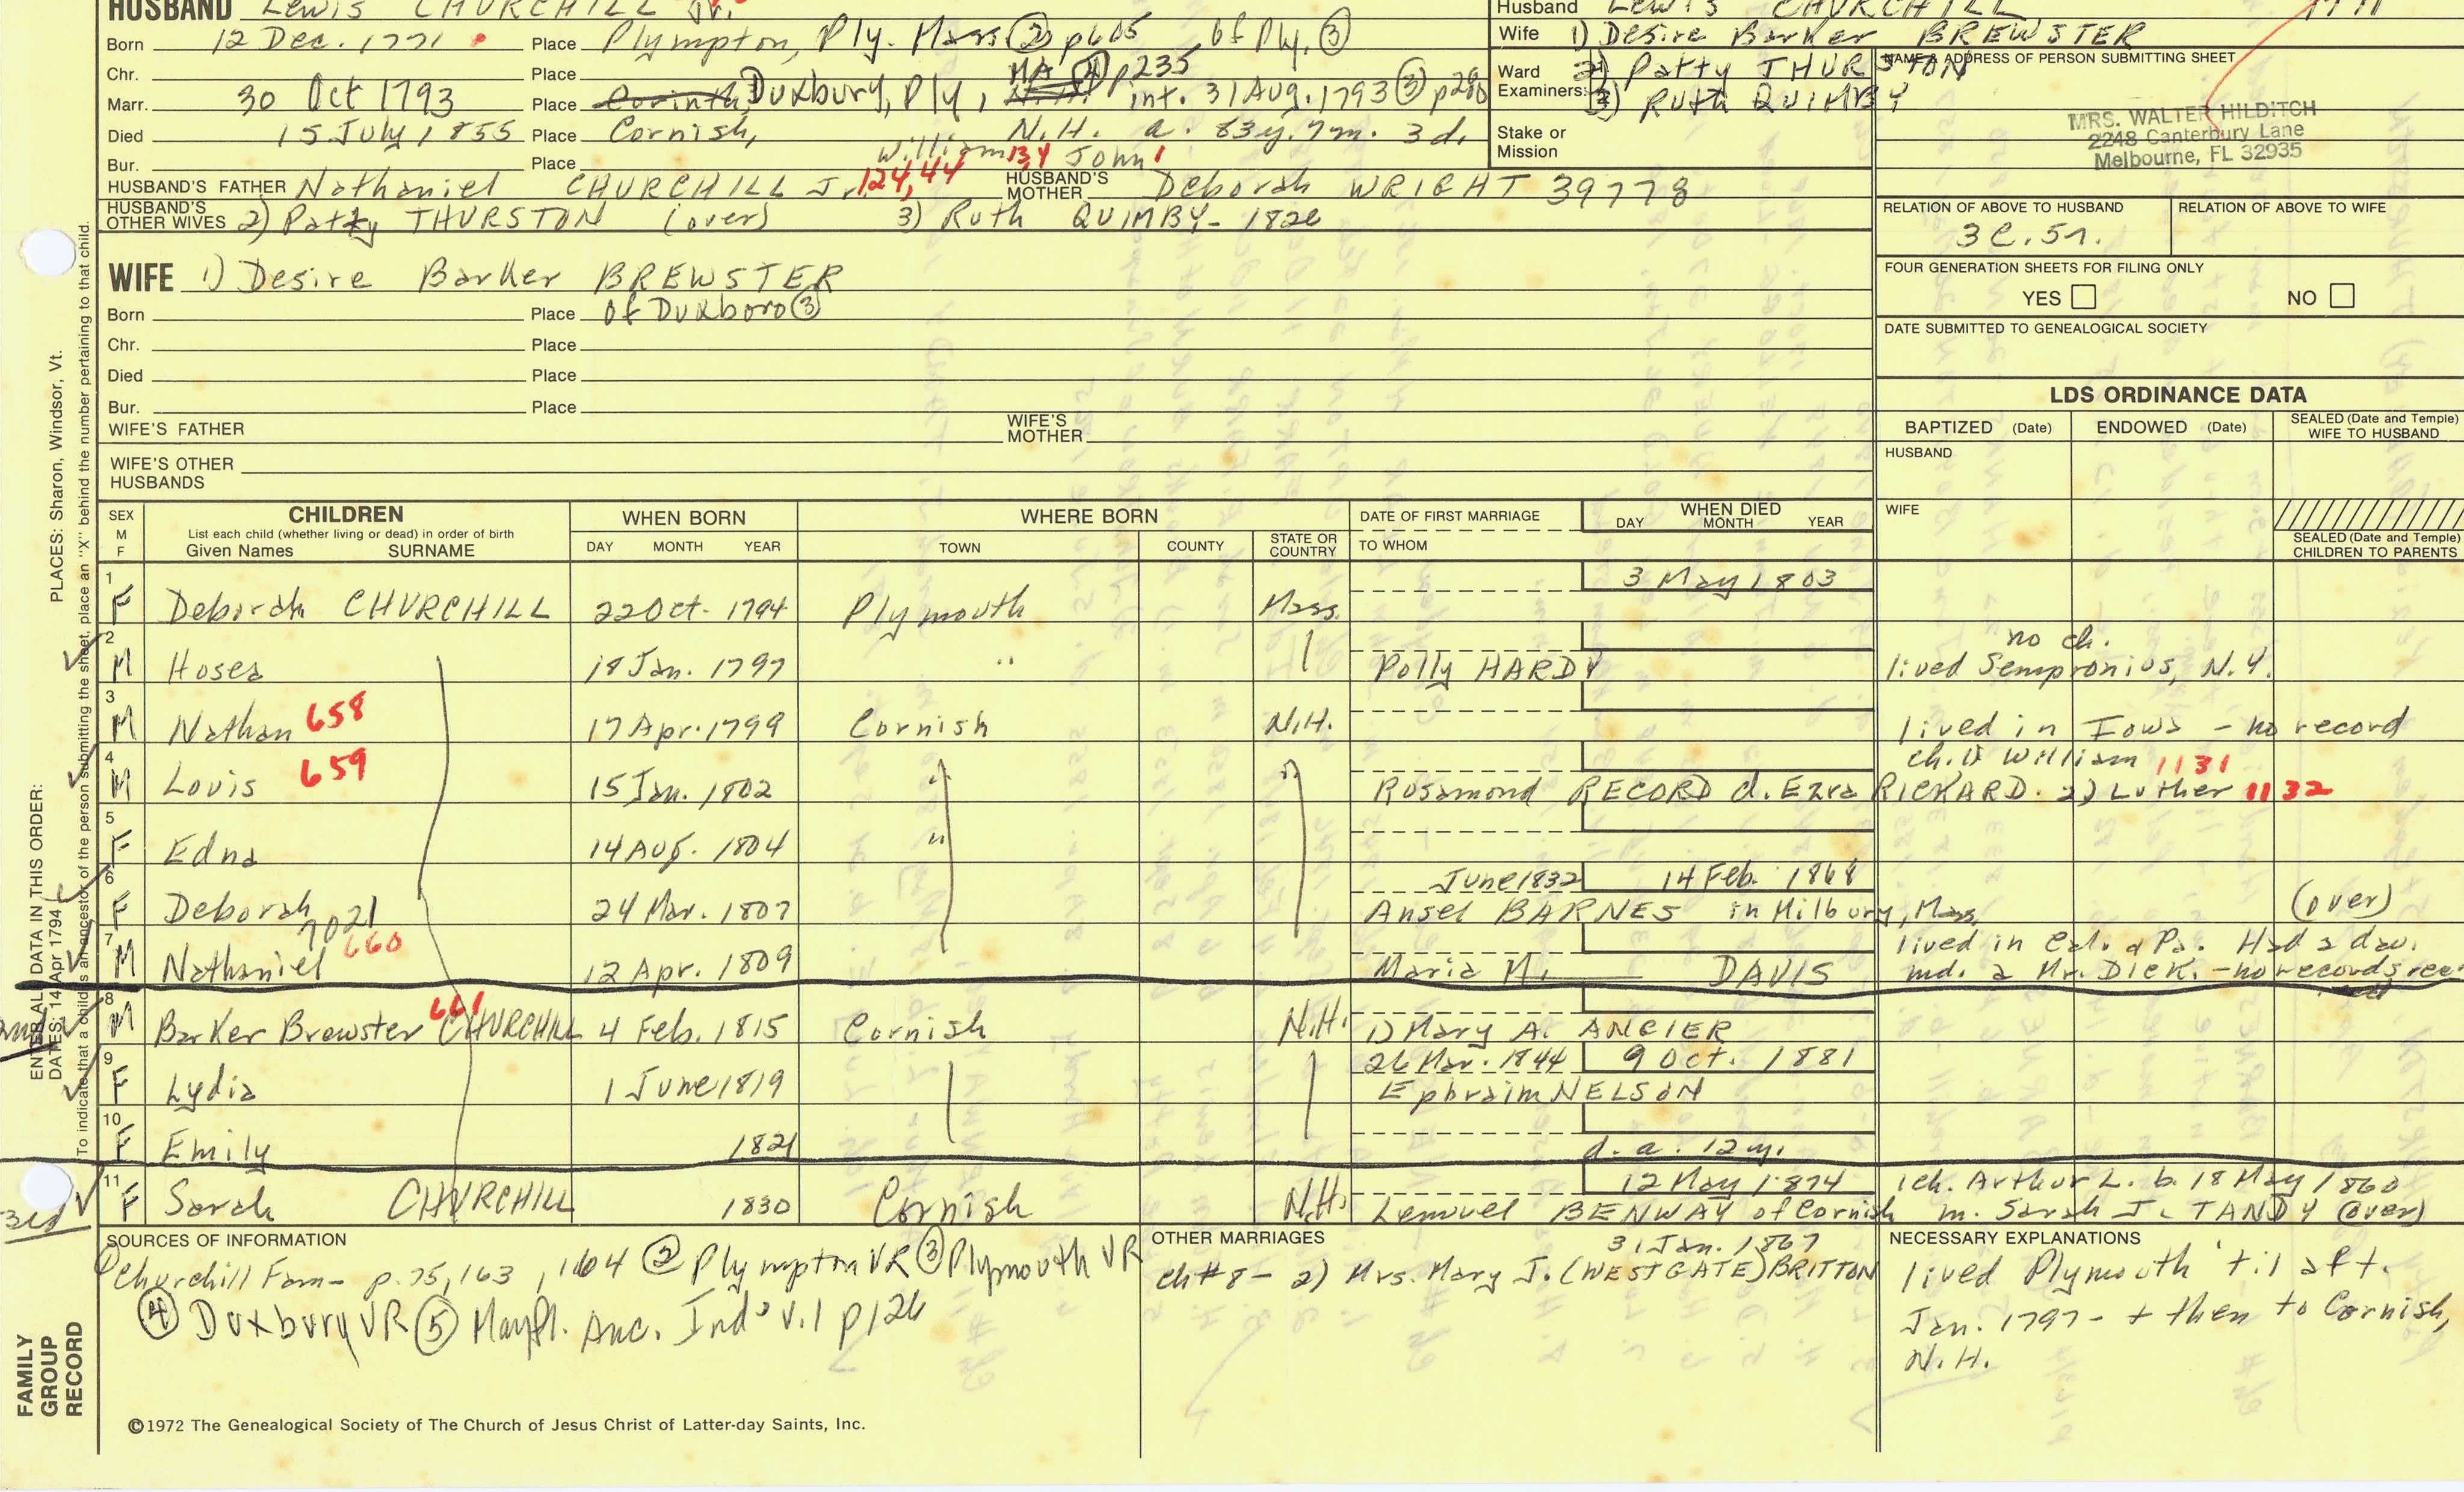 HUSBAND Lewis CHURCHILL Jr.
Husband Lewis CHURCHILL
Born 12 Dec. 1771 Place Plympton, Ply. Mass ② p605 of Ply. ③
Wife 1) Desire Barker BREWSTER
Chr. Place MA ④ p235
Ward Examiners: 2) Patty THURSTON
3) Ruth QUIMBY
NAME & ADDRESS OF PERSON SUBMITTING SHEET
Marr. 30 Oct 1793 Place Corinth, Duxbury, Ply, N.H. int. 31 Aug. 1793 ③ p280
Died 15 July 1855 Place Cornish, N.H. a. 83y. 7m. 3d.
Stake or Mission
MRS. WALTER HILDITCH
2248 Canterbury Lane
Melbourne, FL 32935
Bur. Place William 134 John 1
HUSBAND'S FATHER Nathaniel CHURCHILL Jr. 124, 44 HUSBAND'S MOTHER Deborah WRIGHT 39778
HUSBAND'S OTHER WIVES 2) Patty THURSTON (over) 3) Ruth QUIMBY - 1826
RELATION OF ABOVE TO HUSBAND RELATION OF ABOVE TO WIFE
3C.5r.
WIFE 1) Desire Barker BREWSTER
FOUR GENERATION SHEETS FOR FILING ONLY
YES NO
Born Place of Duxboro ③
DATE SUBMITTED TO GENEALOGICAL SOCIETY
Chr. Place
Died Place
Bur. Place
WIFE'S FATHER WIFE'S MOTHER
WIFE'S OTHER HUSBANDS
LDS ORDINANCE DATA
BAPTIZED (Date) ENDOWED (Date) SEALED (Date and Temple) WIFE TO HUSBAND
HUSBAND
WIFE
SEALED (Date and Temple) CHILDREN TO PARENTS
SEX M F
CHILDREN
List each child (whether living or dead) in order of birth
Given Names SURNAME
WHEN BORN
DAY MONTH YEAR
WHERE BORN
TOWN COUNTY STATE OR COUNTRY
DATE OF FIRST MARRIAGE
TO WHOM
WHEN DIED
DAY MONTH YEAR
3 May 1803
1 F Deborah CHURCHILL 22 Oct. 1794 Plymouth Mass.
no ch.
2 M Hosea 18 Jan. 1797 " Polly HARDY lived Sempronius, N.Y.
3 M Nathan 658 17 Apr. 1799 Cornish N.H. lived in Iowa - no record
ch. 1) William 1131
4 M Louis 659 15 Jan. 1802 " " Rosamond RECORD d. Ezra RICKARD. 2) Luther 1132
5 F Edna 14 Aug. 1804 "
June 1832 14 Feb. 1868
6 F Deborah 24 Mar. 1807 Ansel BARNES in Milbury, Mass. (over)
7021 lived in Cal. & Pa. Had a dau.
7 M Nathaniel 660 12 Apr. 1809 Maria M. DAVIS md. a Mr. DICK. - no records
8 M Barker Brewster 661 CHURCHILL 4 Feb. 1815 Cornish N.H. 1) Mary A. ANGIER
26 Mar. 1844 9 Oct. 1881
9 F Lydia 1 June 1819 Ephraim NELSON
10 F Emily 1821 d. a. 12 y.
12 May 1874 1 ch. Arthur L. b. 18 May 1860
3rd 11 F Sarah CHURCHILL 1830 Cornish N.H. Lemuel BENWAY of Cornish m. Sarah J. TANDY (over)
SOURCES OF INFORMATION
① Churchill Fam - p. 75, 163, 164 ② Plympton VR ③ Plymouth VR
④ Duxbury VR ⑤ Mayfl. Anc. Ind. v.1 p126
OTHER MARRIAGES
31 Jan. 1867
ch #8 - 2) Mrs. Mary J. (WESTGATE) BRITTON
NECESSARY EXPLANATIONS
lived Plymouth 'til aft.
Jan. 1797 - + then to Cornish,
N.H.
©1972 The Genealogical Society of The Church of Jesus Christ of Latter-day Saints, Inc.
FAMILY GROUP RECORD
ENTER ALL DATA IN THIS ORDER:
DATES: 14 Apr 1794
PLACES: Sharon, Windsor, Vt.
To indicate that a child is an ancestor of the person submitting the sheet, place an "X" behind the number pertaining to that child.